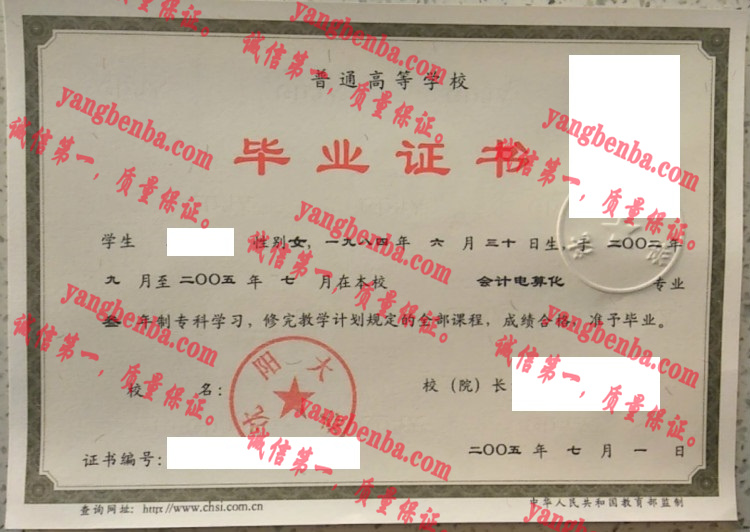 普通高等学校
毕业证书
学生 性别女，一九八四年 六 月三十日生，于 二〇〇二年
九 月至二〇〇五年 七 月在本校 会计电算化 专业
叁 年制专科学习，修完教学计划规定的全部课程，成绩合格，准予毕业。
校 名： 校（院）长：
沈阳大
证书编号： 二〇〇五 年 七 月 一 日
查询网址：http://www.chsi.com.cn 中华人民共和国教育部监制
yangbenba.com
诚信第一，质量保证。
yangbenba.com
诚信第一，质量保证。
yangbenba.com
诚信第一，质量保证。
yangbenba.com
诚信第一，质量保证。
yangbenba.com
诚信第一，质量保证。
yangbenba.com
诚信第一，质量保证。
yangbenba.com
诚信第一，质量保证。
yangbenba.com
诚信第一，质量保证。